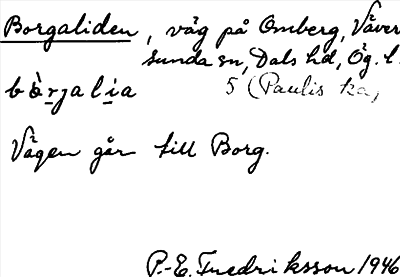 Borgaliden, väg på Omberg, Väver
sunda sn, Dals hd, Ög. l.
bòrjalia 5 (Paulis ka)
Vägen går till Borg.
P.-E. Fredriksson 1946